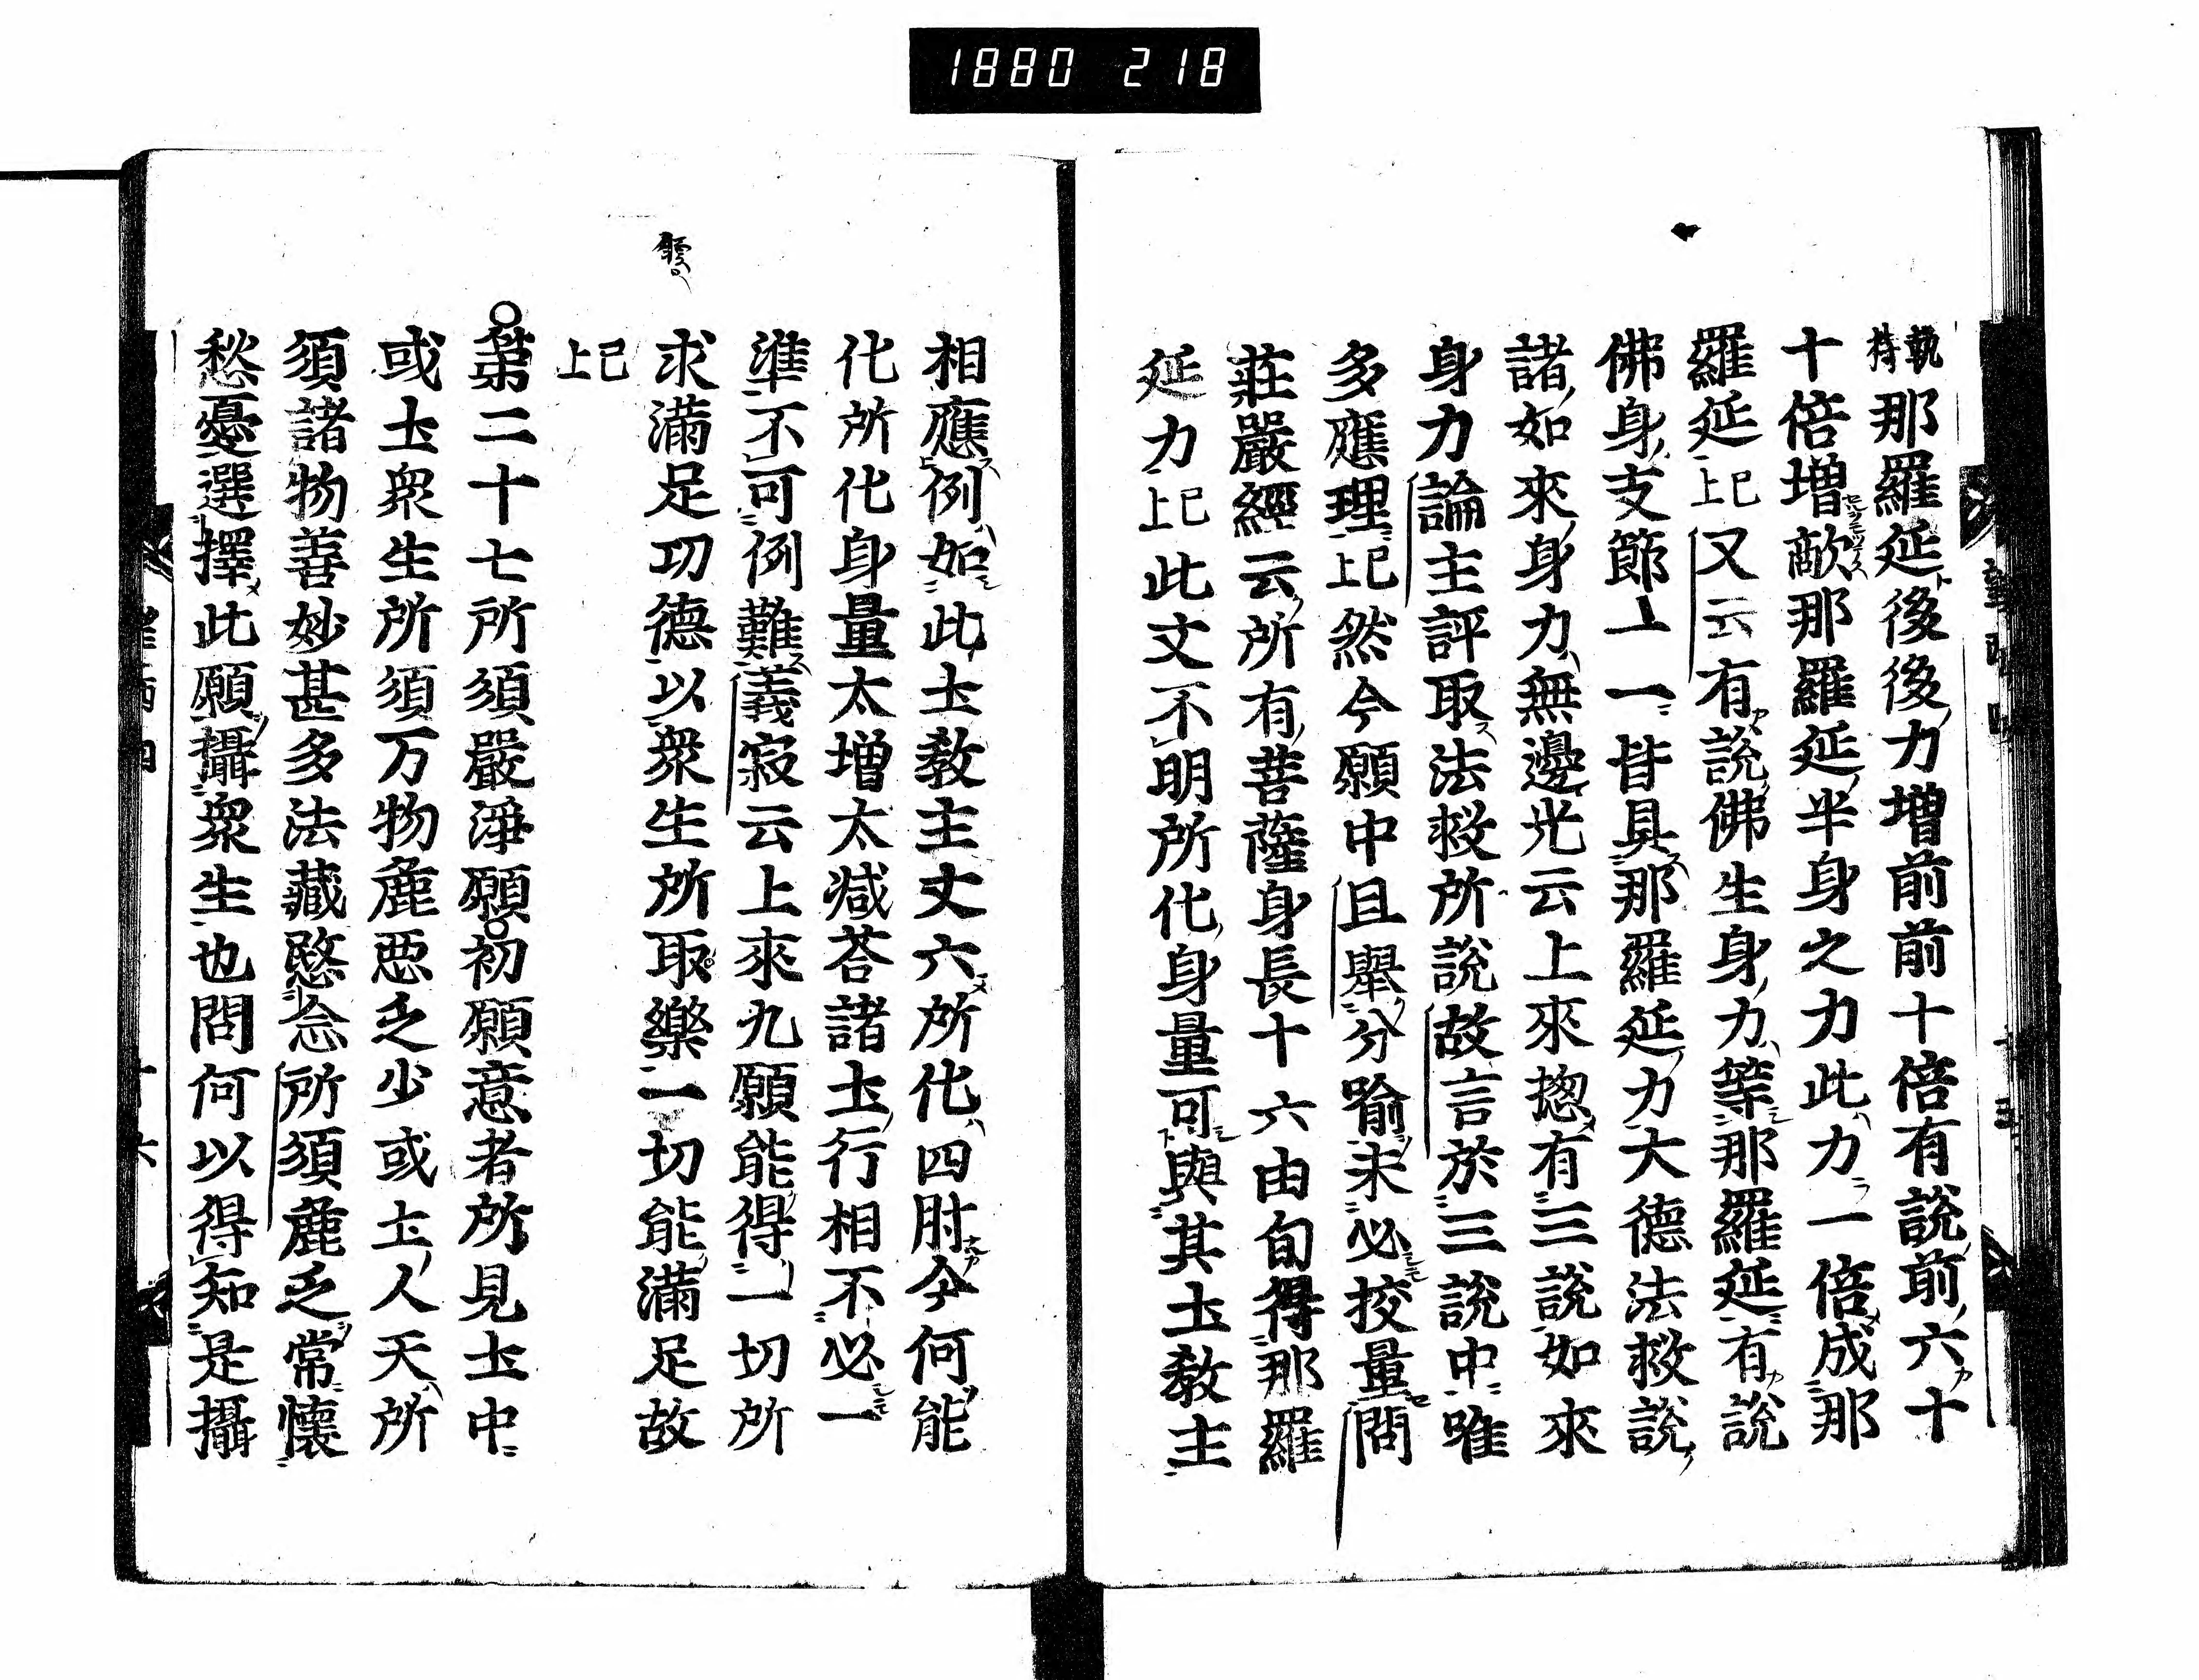 1880 218
執持那羅延後後力增前前十倍有說前六十
十倍增敵那羅延半身之力此力一倍成那
羅延已上又云有說佛生身力等那羅延有說
佛身支節一一皆具那羅延力大德法救說
諸如來身力無邊光云上來揔有三說如來
身力論主評取法救所說故言於三說中唯
多應理已上然今願中且舉分喻未必挍量問
莊嚴經云所有菩薩身長十六由旬得那羅
延力已上此文不明所化身量可與其圡教主
相應例如此圡教主丈六所化四肘今何能
化所化身量太增太减荅諸圡行相不必一
準不可例難義寂云上來九願能得一切所
求滿足功德以衆生所取樂一切能滿足故
已上
○第二十七所須嚴淨願○初願意者所見圡中
或圡衆生所須万物麁惡乏少或圡人天所
須諸物善妙甚多法藏愍念所須麁乏常懷
愁憂選擇此願攝衆生也問何以得知是攝